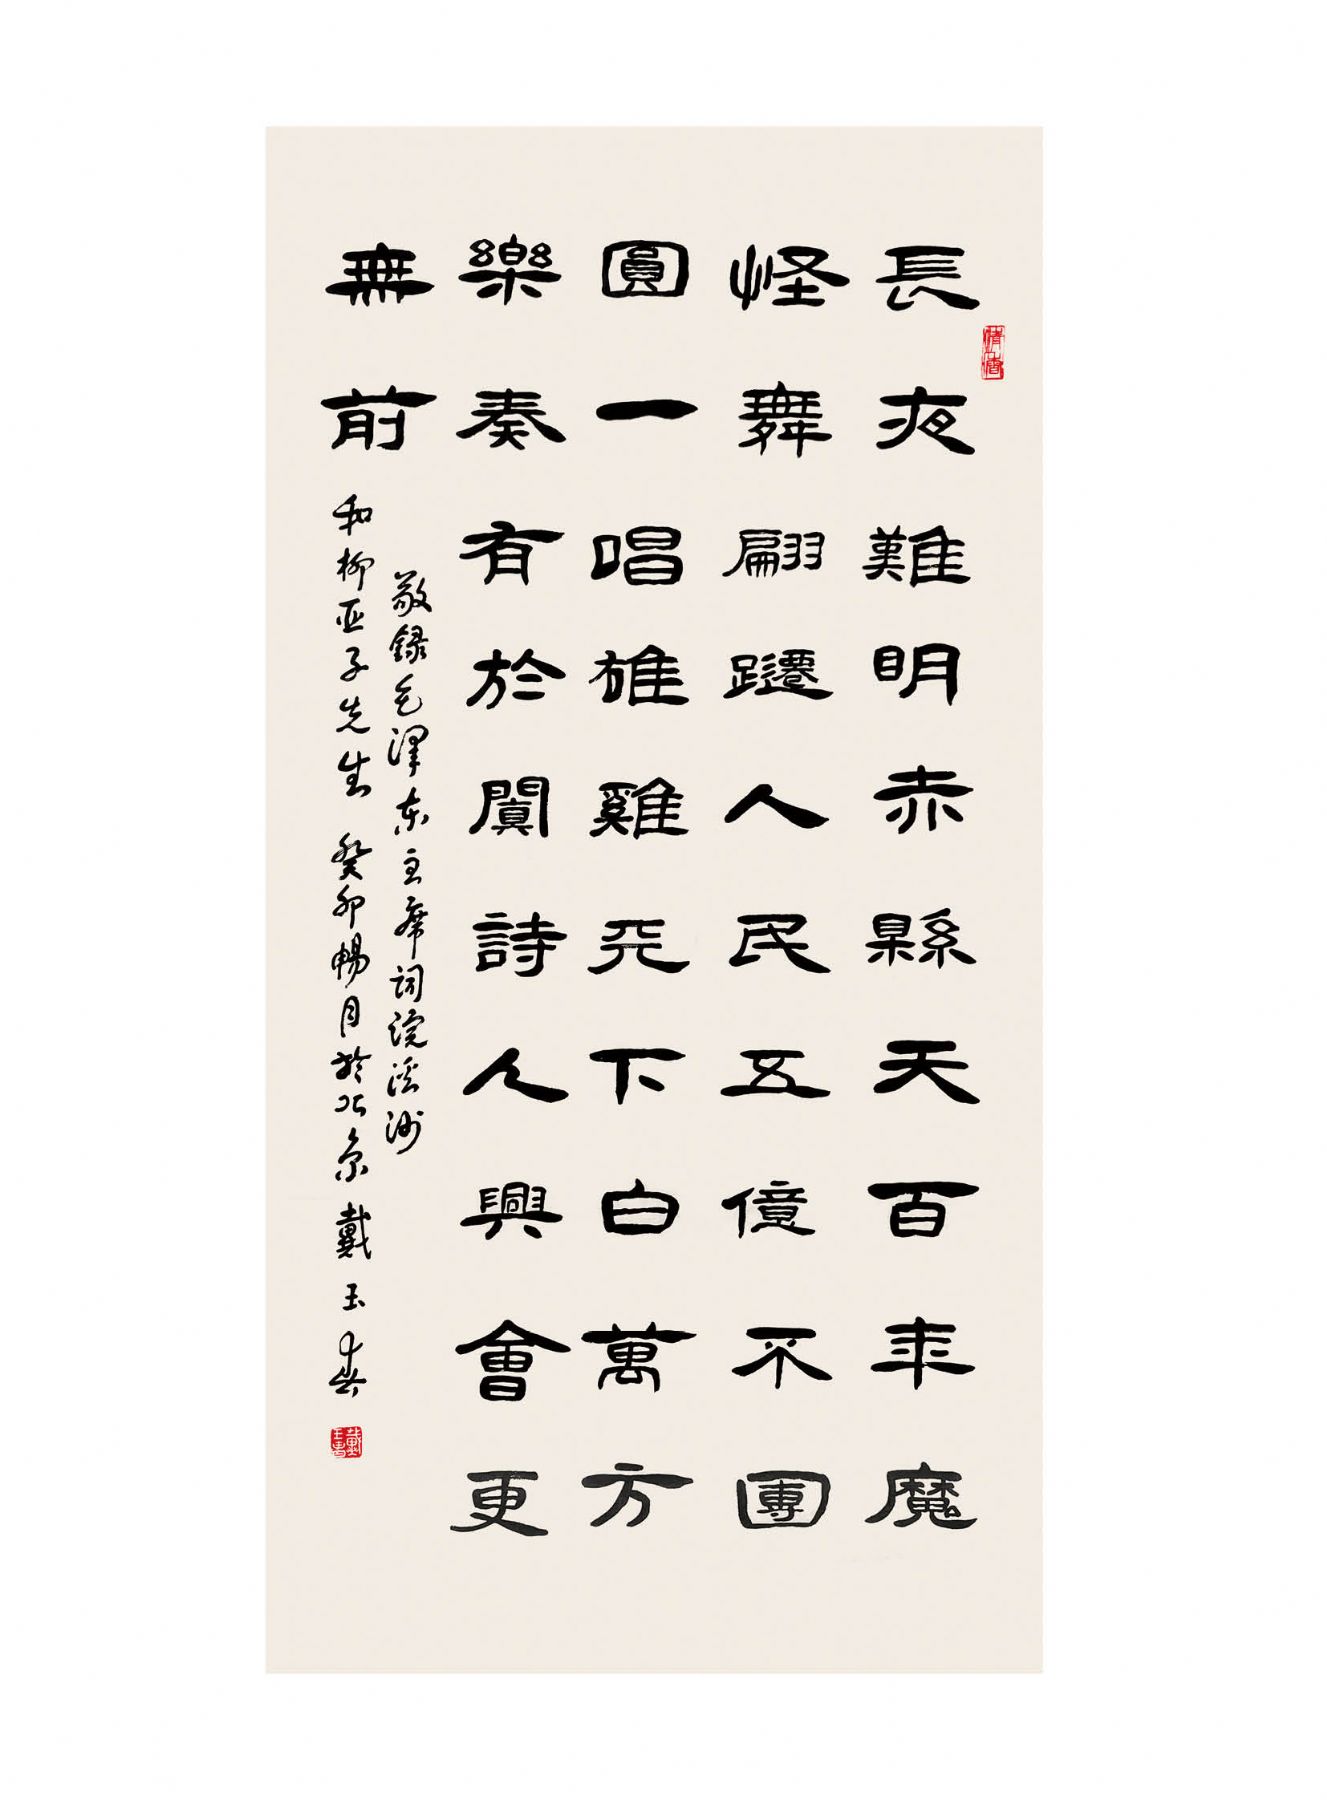 長夜難明赤縣天百年魔
怪舞翩躚人民五億不團
圓一唱雄雞天下白萬方
樂奏有於闐詩人興會更
無前
敬録毛澤东主席词浣溪沙
和柳亚子先生 癸卯暢月於北京 戴玉春